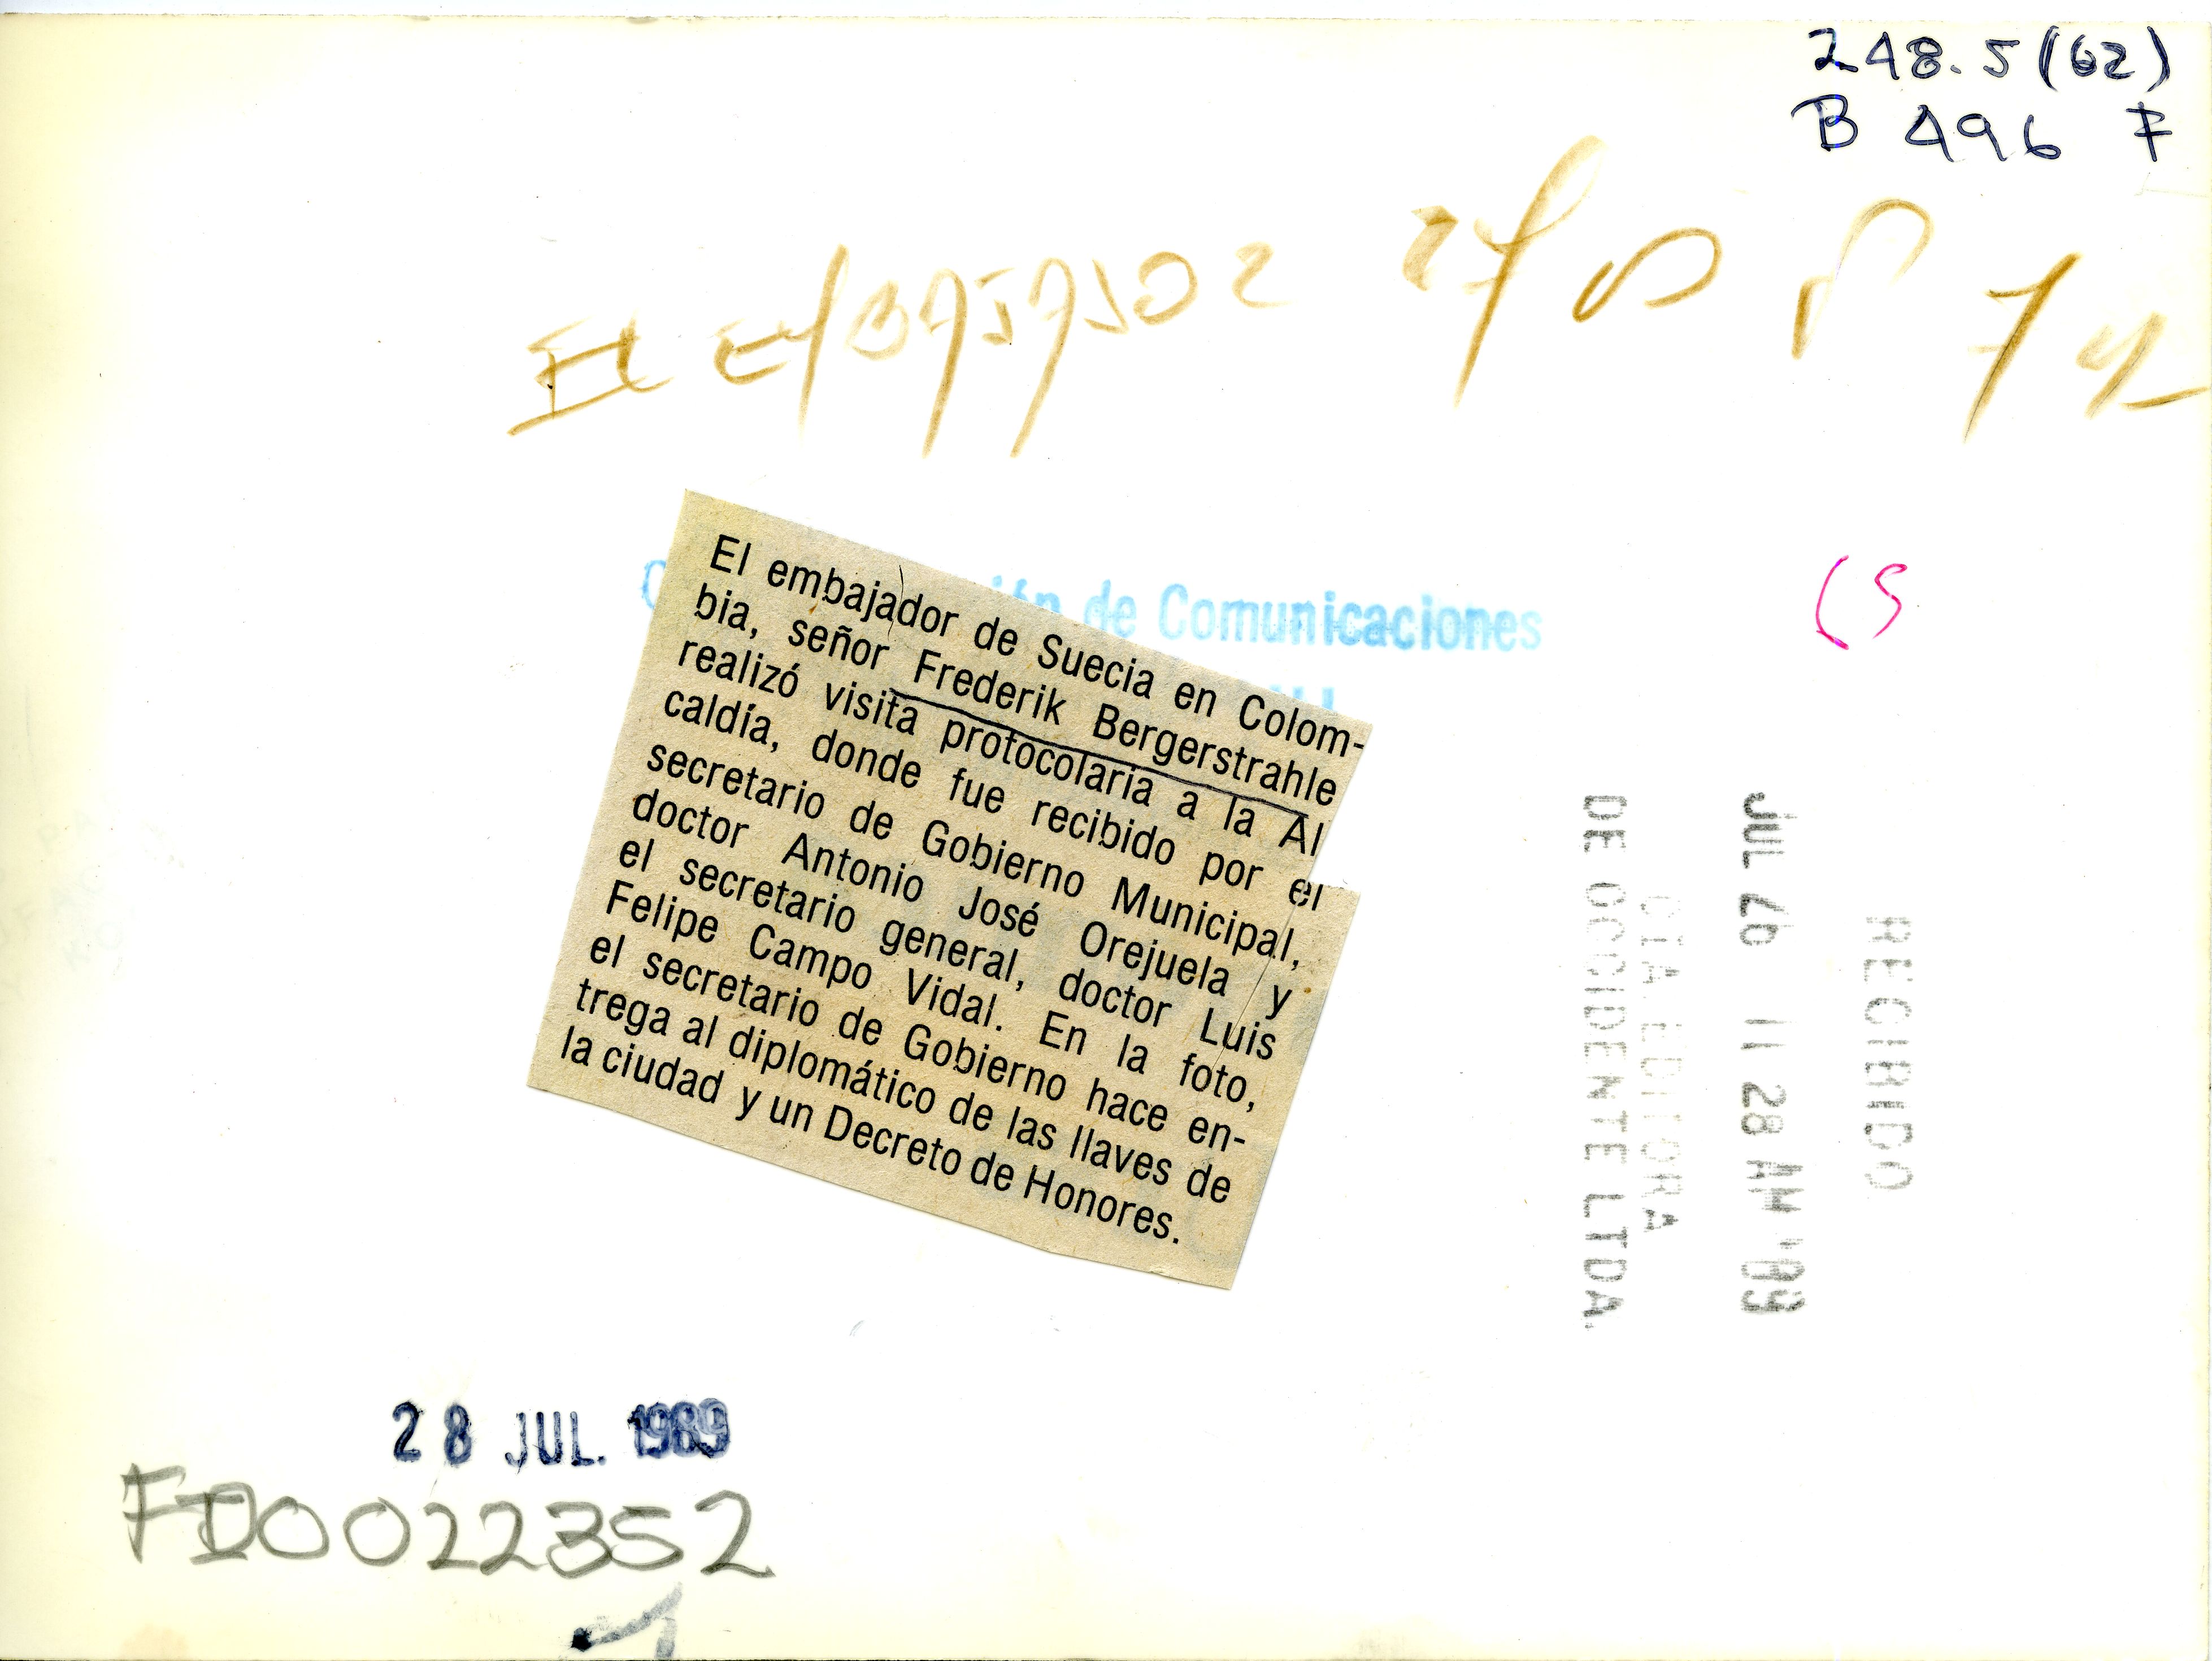 248.5(62)
B 496 F
El embajador de Suecia en Colom-
bia, señor Frederik Bergerstrahle
realizó visita protocolaria a la Al
caldía, donde fue recibido por el
secretario de Gobierno Municipal,
doctor Antonio José Orejuela y
el secretario general, doctor Luis
Felipe Campo Vidal. En la foto,
el secretario de Gobierno hace en-
trega al diplomático de las llaves de
la ciudad y un Decreto de Honores.
de Comunicaciones
RECIBIDO
JUL 26 11 28 AM '89
CIA. EDITORA
DE OCCIDENTE LTDA.
28 JUL. 1989
FD0022352